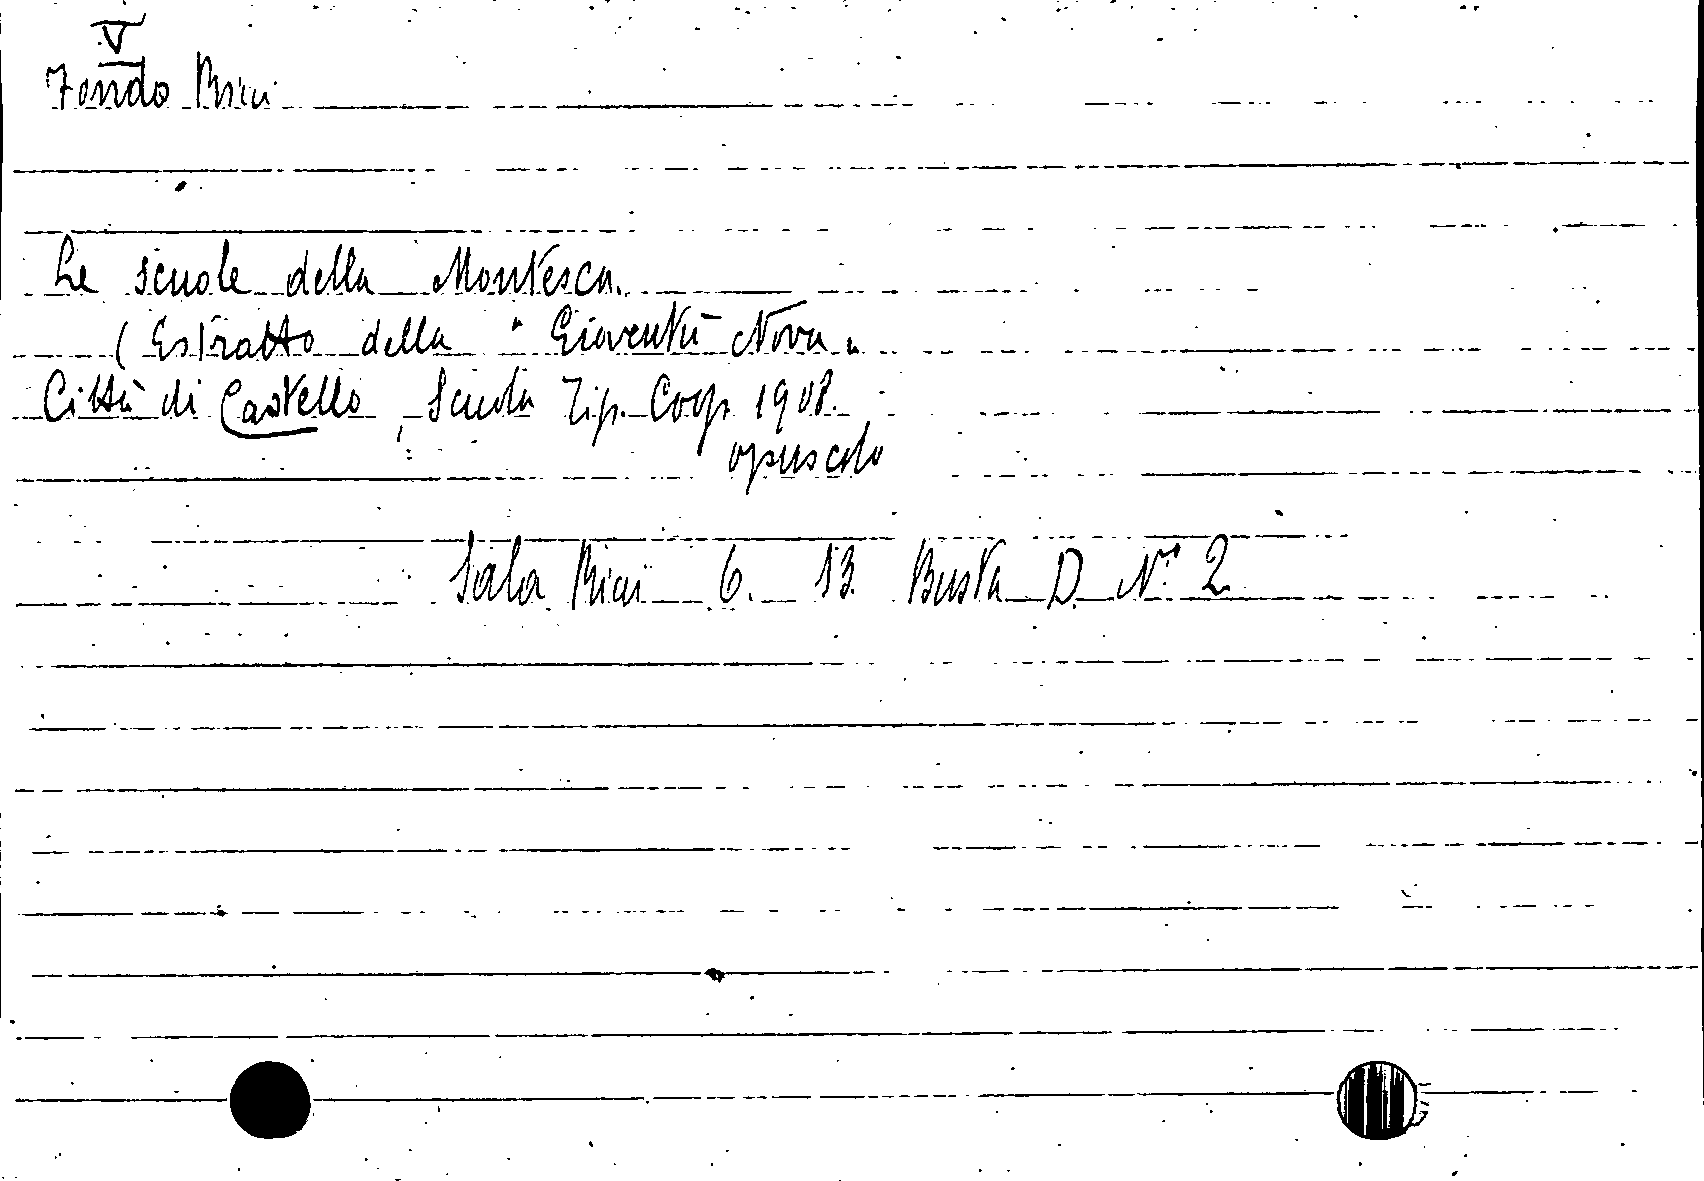 V
Fondo Ricci
Le scuole della Montesca.
(Estratto della "Gioventù Nova"
Città di Castello, Scuola Tip. Coop. 1908.
opuscolo
Sala Ricci 6. 13. Busta D. N° 2